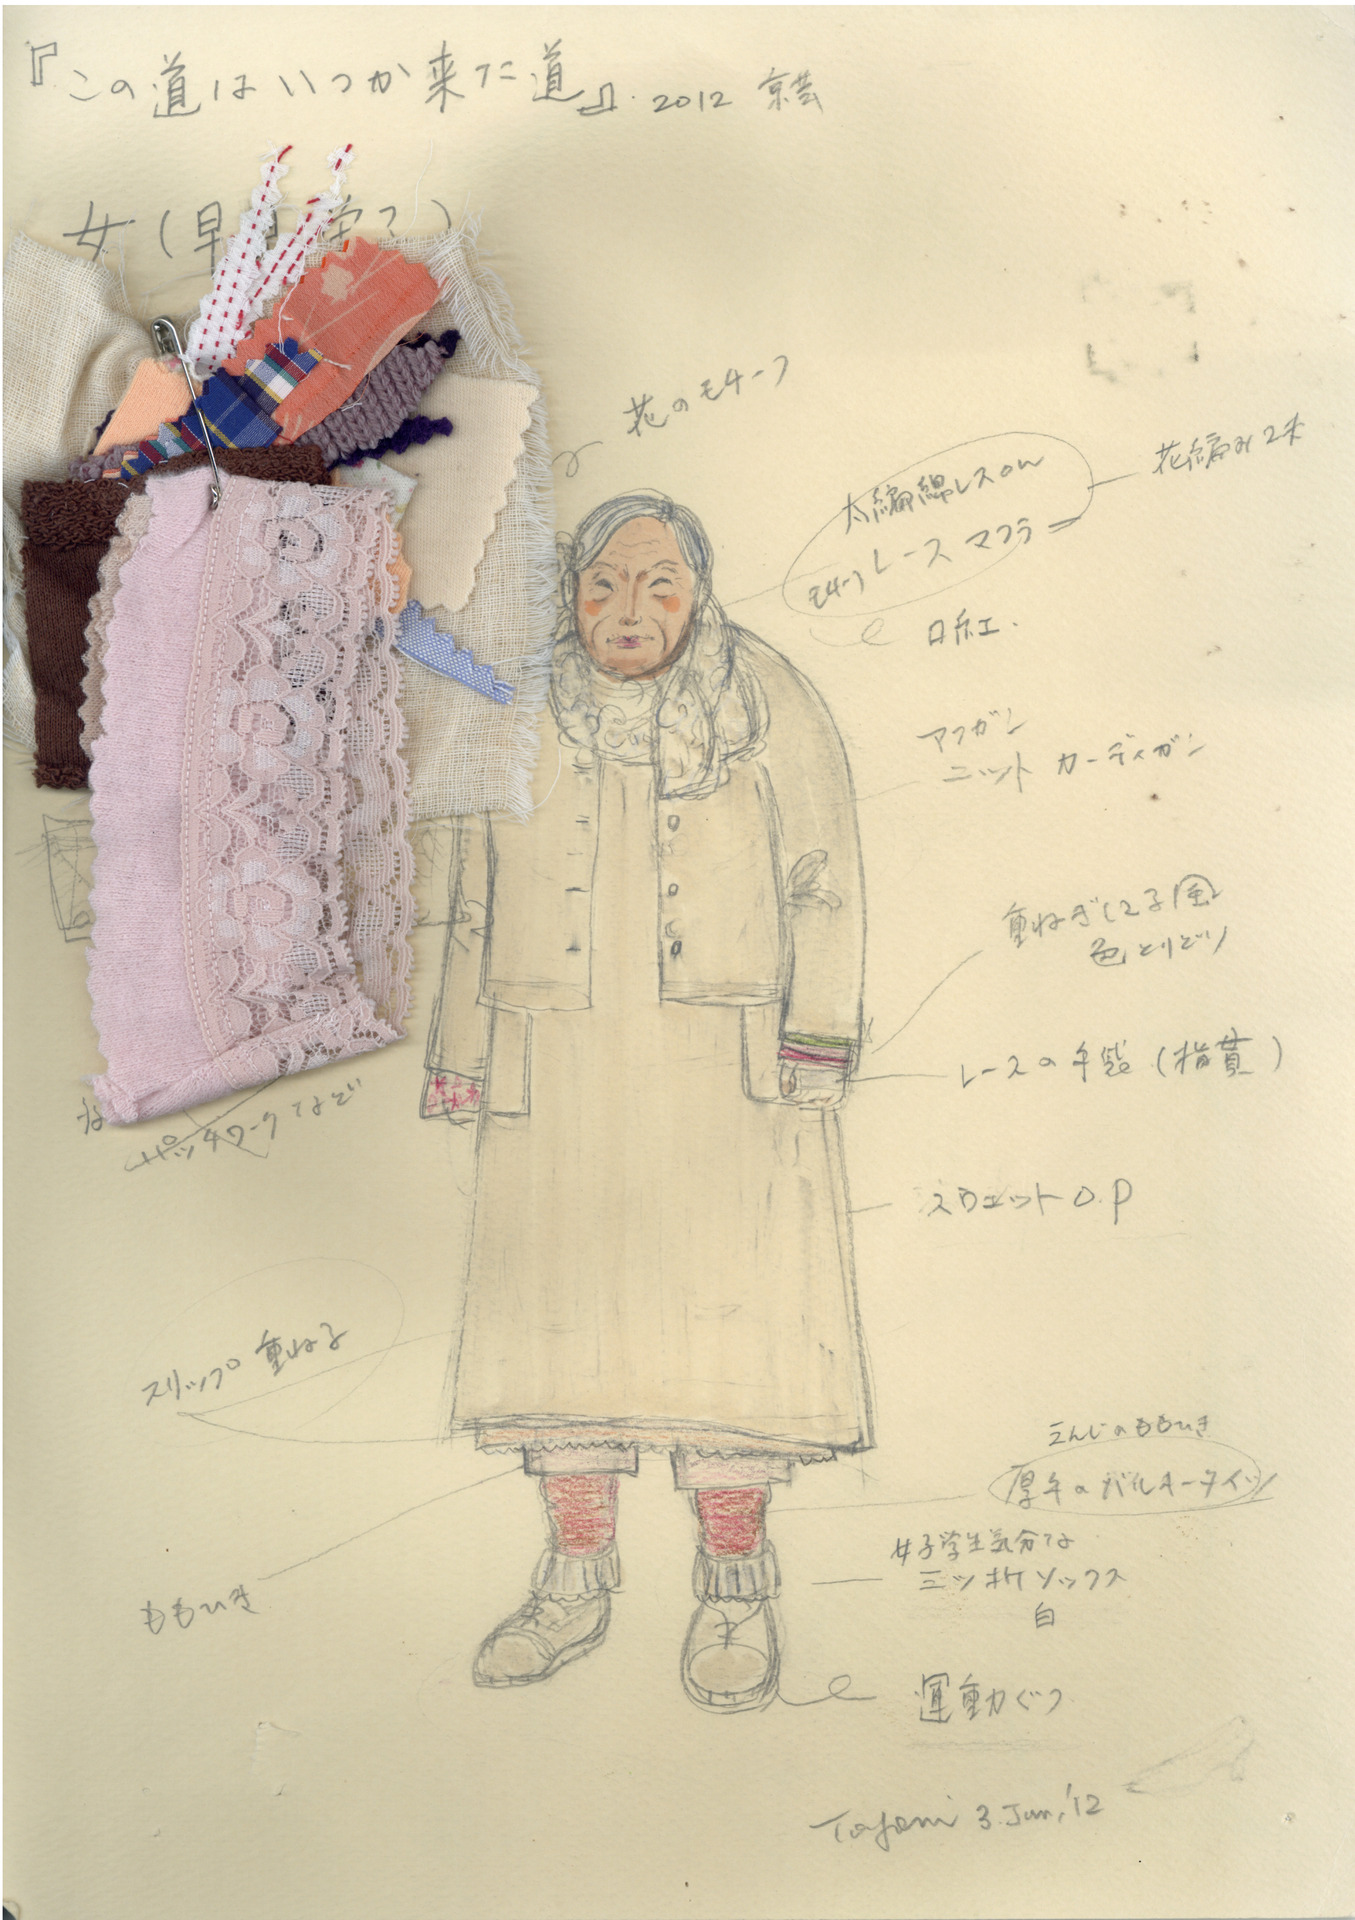 『この道はいつか来た道』. 2012 京芸
女(早
花のモチーフ
太編綿レスon
モチーフ レース マフラー
花編み2本
口紅.
アフガン
ニット カーディガン
重ねぎしてる風
色とりどり
レースの手袋(指貫)
パッチワークなど
スウェット O.P
スリップ 重ねる
えんじのももひき
厚手のバルキータイツ
女子学生気分な
三ッ折ソックス
白
ももひき
運動ぐつ
3. Jun, '12